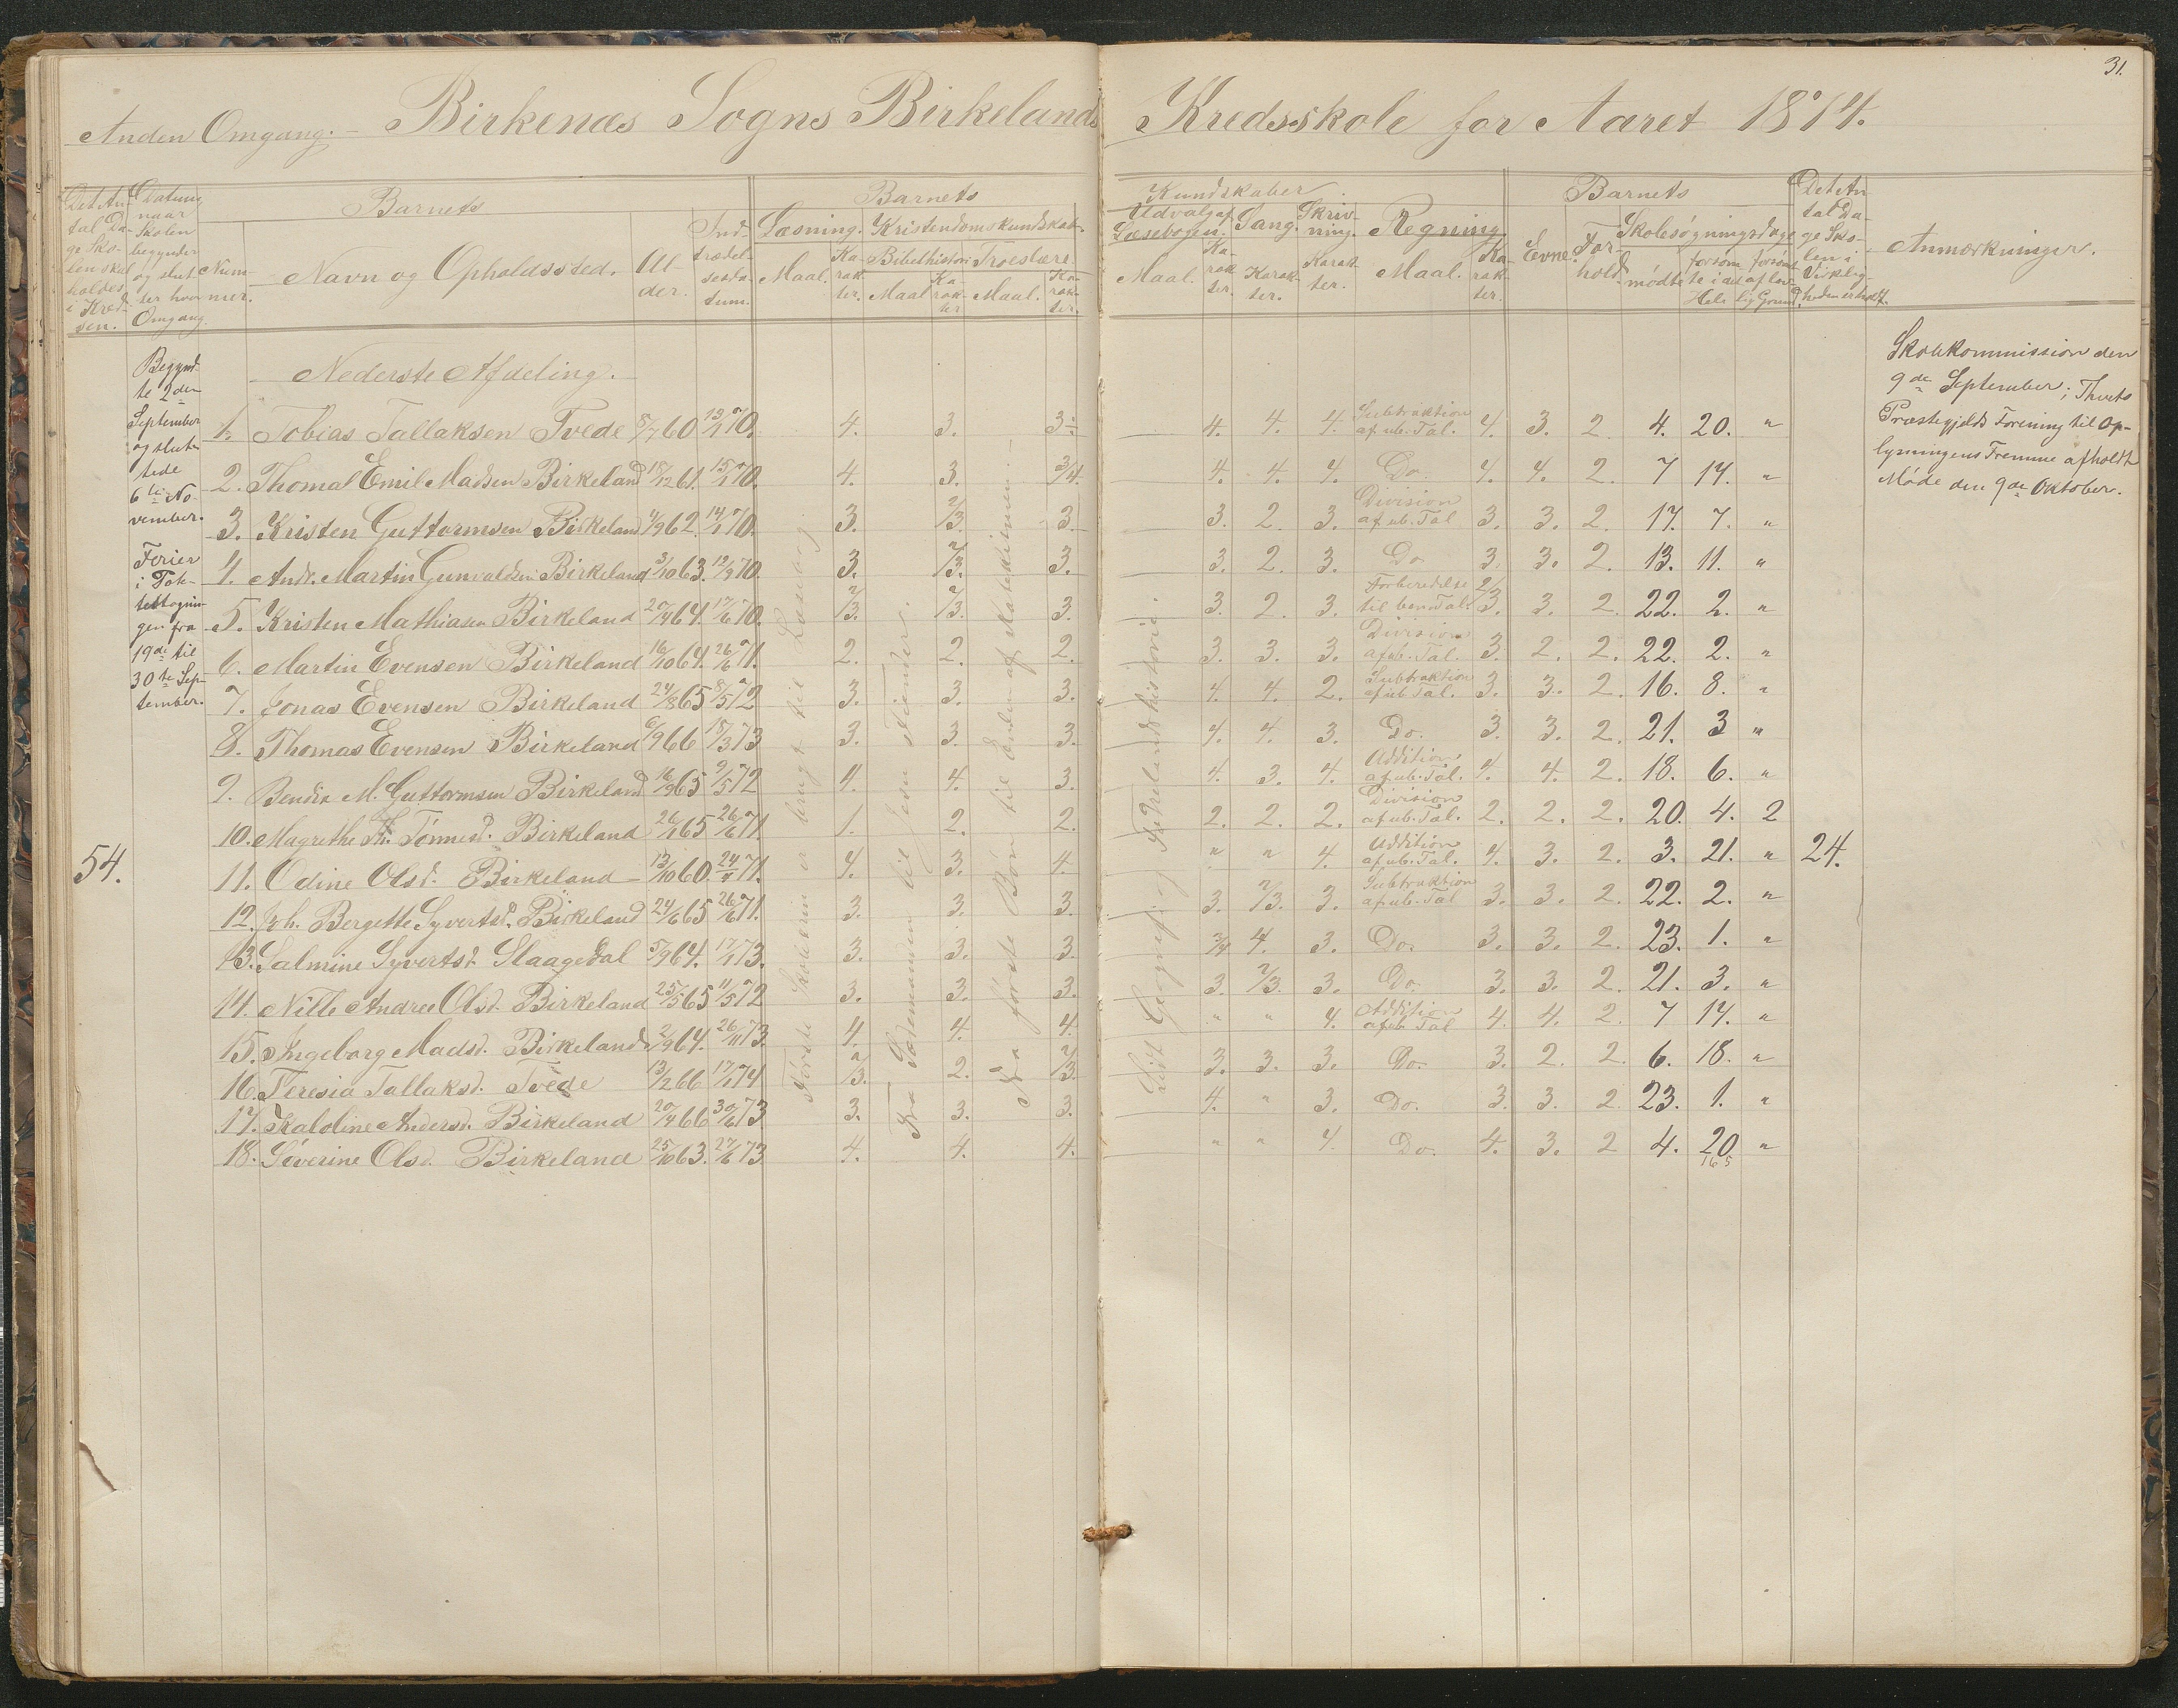 31.
Anden Omgang. – Birkenæs Sogns Birkelands Kredsskole for Aaret 1874.
Det An-
tal Da-
ge Sko-
len skal
holdes
i Kred-
sen.
Datum
naar
Skolen
begynder
og slut-
ter hver
Omgang.
Barnets
Num-
mer.
Navn og Opholdssted.
Al-
der.
Ind-
trædel-
sesda-
tum.
Barnets
Læsning. Kristendomskundskab.
Maal. Ka-
rak-
ter.
Bibelhistorie Troeslære.
Maal Ka-
rak-
ter
Maal. Ka-
rak-
ter.
Kundskaber.
Udvalg af
Læsebogen.
Maal. Ka-
rak-
ter.
Sang.
Karak-
ter.
Skriv-
ning.
Karak-
ter.
Regning
Maal. Ka-
rak-
ter.
Barnets
Evne. For-
hold.
Skolesøgningsdage
mødte forsøm-
te i det
Hele
forsømte
af lov-
lig Grund.
Det An-
tal Da-
ge Sko-
len i
Virkelig-
heden er holdt.
Anmærkninger.
Nederste Afdeling.
Begynd-
te 2den
September
og slut-
tede
6te No-
vember.
Ferier
i Pote-
tettagnin-
gen fra
19de til
30te Sep-
tember.
54.
1. Tobias Tallaksen Tvede 8/7 60 13/1 70. 4. 3. 3÷ 4. 4. 4. Subtraktion af ub. Tal. 4. 3. 2. 4. 20. "
2. Thomas Emil Madsen Birkeland 18/12 61. 15/1 70. 4. 3. 3/4. 4. 4. 4. Do. 4. 4. 2. 7 17. "
3. Kristen Guttormsen Birkeland 4/9 62. 14/1 70. 3. 2/3. 3. 3. 2. 3. Division af ub. Tal 3. 3. 2. 17. 7. "
4. Andr. Martin Gunvaldsen Birkeland 3/10 63. 12/9 70. 3. 2/3. 3. 3. 2. 3. Do 3. 3. 2. 13. 11. "
5. Kristen Mathiasen Birkeland 20/4 64. 17/6 70. 2/3. 2/3. 3. 3. 2. 3. Forberedelse til ben. Tal. 2/3. 3. 2. 22. 2. "
6. Martin Evensen Birkeland 16/10 64. 26/6 71. 2. 2. 2. 3. 3. 3. Division af ub. Tal. 3. 2. 2. 22. 2. "
7. Jonas Evensen Birkeland 24/8 65 8/5 72 3. 3. 3. 4. 4. 2. Subtraktion af ub Tal. 3. 3. 2. 16. 8. "
8. Thomas Evensen Birkeland 6/9 66 15/3 73 3. 3. 3. 4. 4. 3. Do. 3. 3. 2. 21. 3 "
9. Bendix M. Guttormsen Birkeland 16/9 65 9/5 72 4. 4. 3. 4. 3. 4. Addition af ub. Tal. 4. 4. 2. 18. 6. "
10. Magrethe Th. Tønnesd. Birkeland 26/1 65 26/6 71. 1. 2. 2. 2. 2. 2. Division af ub. Tal. 2. 2. 2. 20. 4. 2
11. Odine Olsd. Birkeland 13/10 60. 24/4 71. 4. 3. 4. " " 4. Addition af ub. Tal. 4. 3. 2. 3. 21. " 24.
12. Joh. Bergette Syvertsd. Birkeland 24/6 65 26/6 71. 3. 3. 3. 3. 2/3. 3. Subtraktion af ub. Tal 3. 3. 2. 22. 2. "
13. Salmine Syvertsd. Slaagedal 5/9 64. 17/1 73. 3. 3. 3. 3/4 4. 3. Do. 3. 3. 2. 23. 1. "
14. Nille Andrea Olsd. Birkeland 25/5 65 11/5 72 3. 3. 3. 3. 2/3. 3. Do. 3. 3. 2. 21. 3. "
15. Ingeborg Madsd. Birkeland 2/9 64. 26/11 73. 4. 4. 4. " " 4. Addition af ub. Tal 4. 4. 2. 7 17. "
16. Teresia Tallaksd. Tvede 13/2 66 17/1 74 2/3. 2. 2/3. 3. 3. 3. Do. 3. 2. 2. 6. 18. "
17. Kaldine Andersd. Birkeland 20/4 66 30/6 73 3. 3. 3. 4. " 3. Do. 3. 3. 2. 23. 1. "
18. Severine Olsd. Birkeland 25/10 63. 27/6 73 4. 4. 4. " " 4. Do. 4. 3. 2 4. 20 "
165
Første Skoletrin er brugt til Læsebog.
Fra Sædemanden til Jesu Fiender.
Fra første Bøn til Enden af Katekismen.
Lidt Geografi og Fædrelandshistorie.
Skolekommission den
9de September; Thvets
Præstegjelds Forening til Op-
lysningens Fremme afholdt
Møde den 9de Oktober.